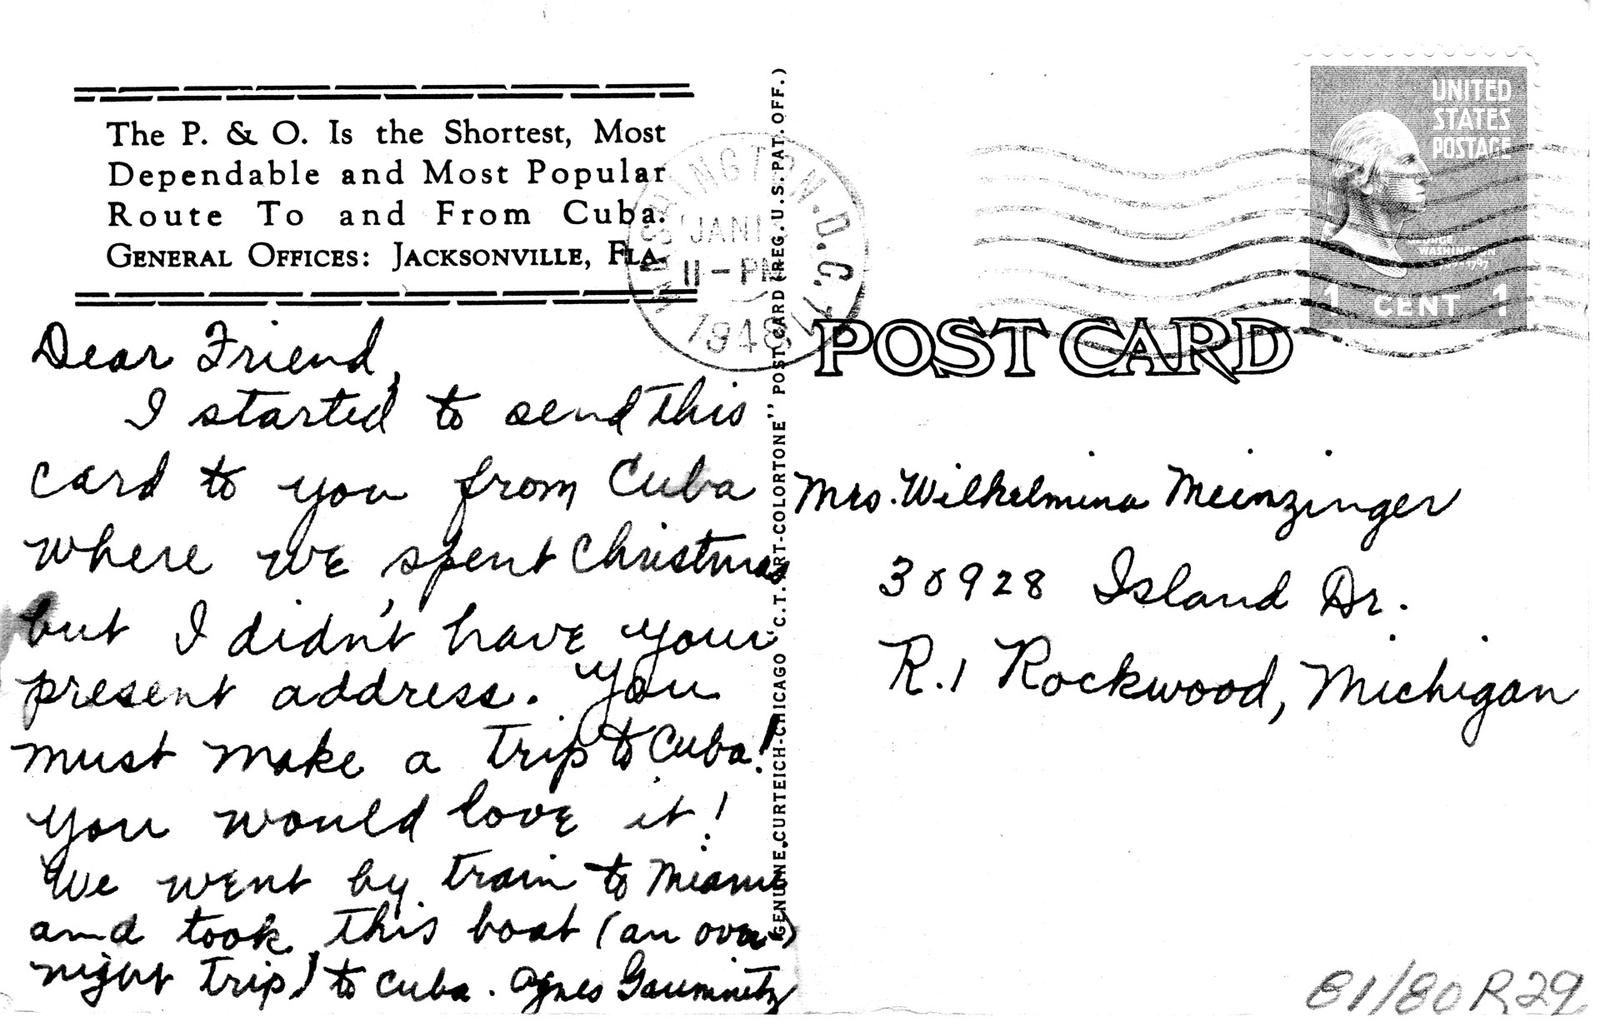 The P. & O. Is the Shortest, Most
Dependable and Most Popular
Route To and From Cuba.
GENERAL OFFICES: JACKSONVILLE, FLA.
WASHINGTON, D.C.
JAN
11-PM
1948
UNITED
STATES
POSTAGE
GEORGE
WASHINGTON
1 CENT 1
POST CARD
GENUINE CURTEICH-CHICAGO "C.T. ART-COLORTONE" POST CARD (REG. U.S. PAT. OFF.)
Dear Friend,
I started to send this
card to you from Cuba
where we spent Christmas
but I didn't have your
present address. You
must make a trip to Cuba!
You would love it!
We went by train to Miami
and took this boat (an over-
night trip) to Cuba. Agnes
Mrs. Wilhelmina Meinzinger
30928 Island Dr.
R.1 Rockwood, Michigan
81/80 R29